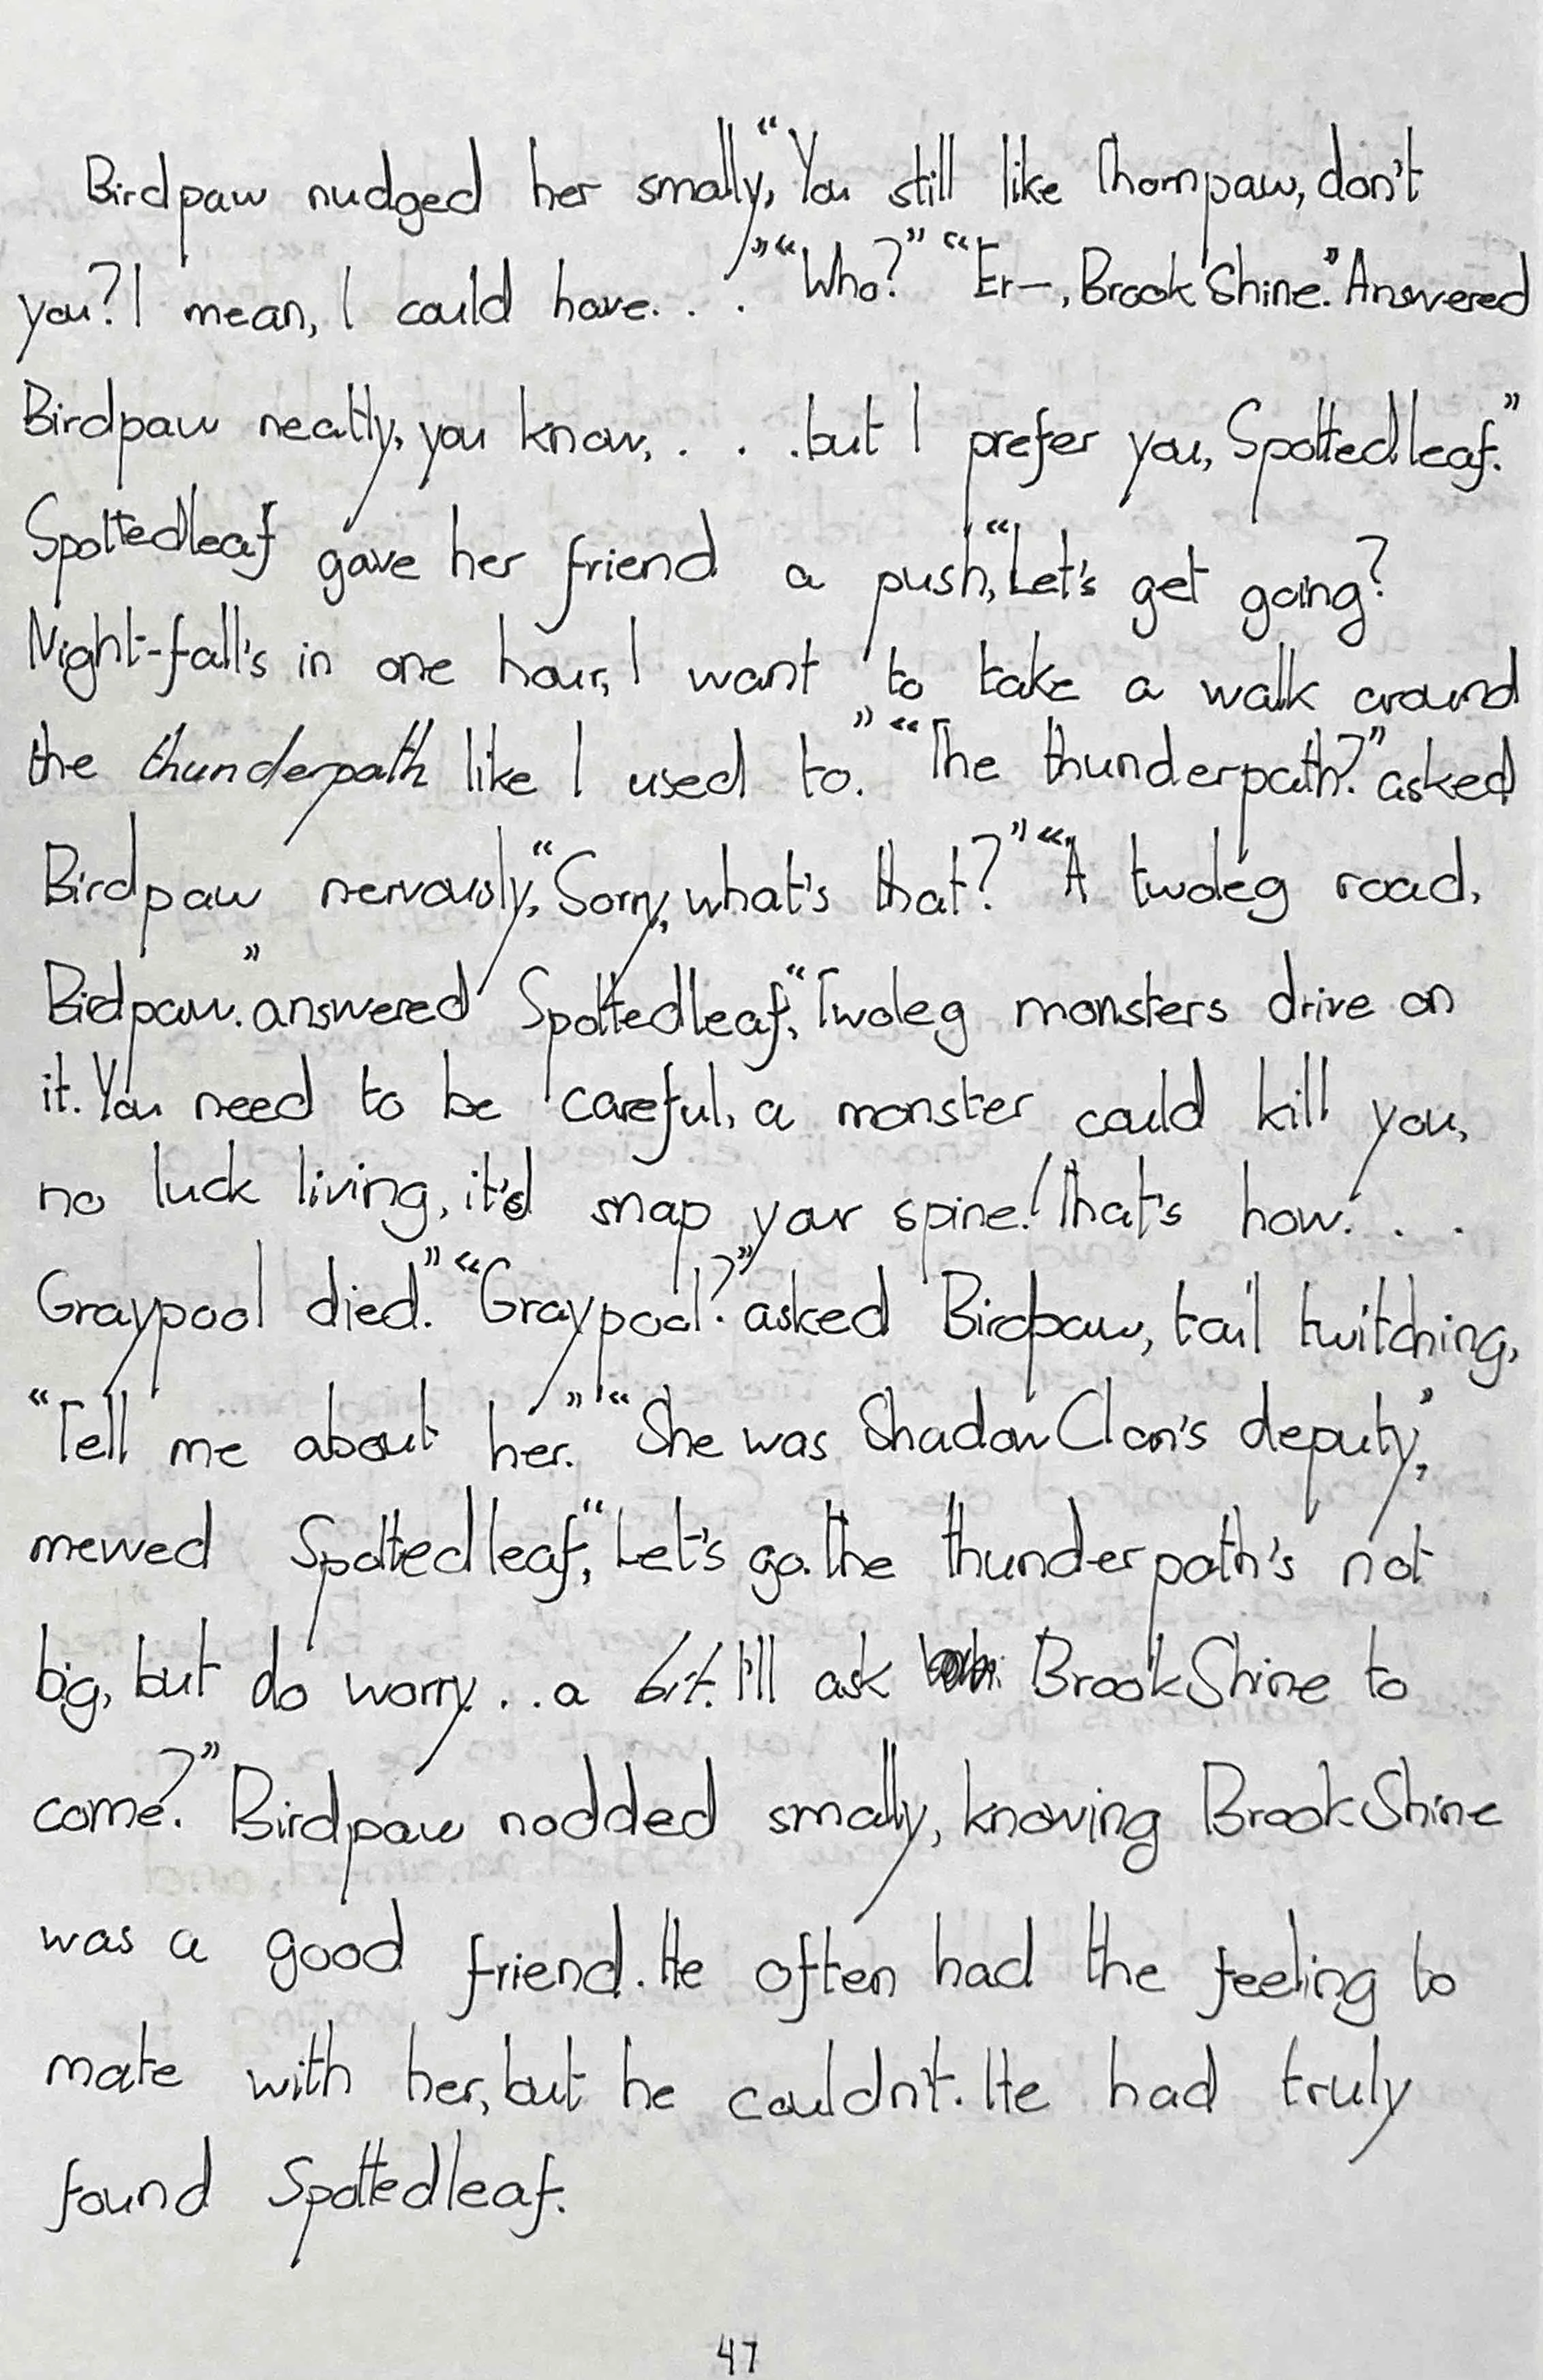 Birdpaw nudged her smally, “You still like Thornpaw, don't
you? I mean, I could have. . .” “Who?” “Er—, BrookShine.” Answered
Birdpaw neatly, you know, . . .but I prefer you, Spottedleaf.”
Spottedleaf gave her friend a push, “Let's get going?
Night-fall's in one hour, I want to take a walk around
the thunderpath like I used to.” “The thunderpath?” asked
Birdpaw nervously, “Sorry, what's that?” “A twoleg road,
Birdpaw.” answered Spottedleaf, “Twoleg monsters drive on
it. You need to be careful, a monster could kill you,
no luck living, it'd snap your spine! That's how. . .
Graypool died.” “Graypool?” asked Birdpaw, tail twitching,
“Tell me about her.” “She was ShadowClan's deputy,”
mewed Spottedleaf, “Let's go. The thunderpath's not
big, but do worry. . . a bit. I'll ask BrookShine to
come?” Birdpaw nodded smally, knowing BrookShine
was a good friend. He often had the feeling to
mate with her, but he couldn't. He had truly
found Spottedleaf.
47